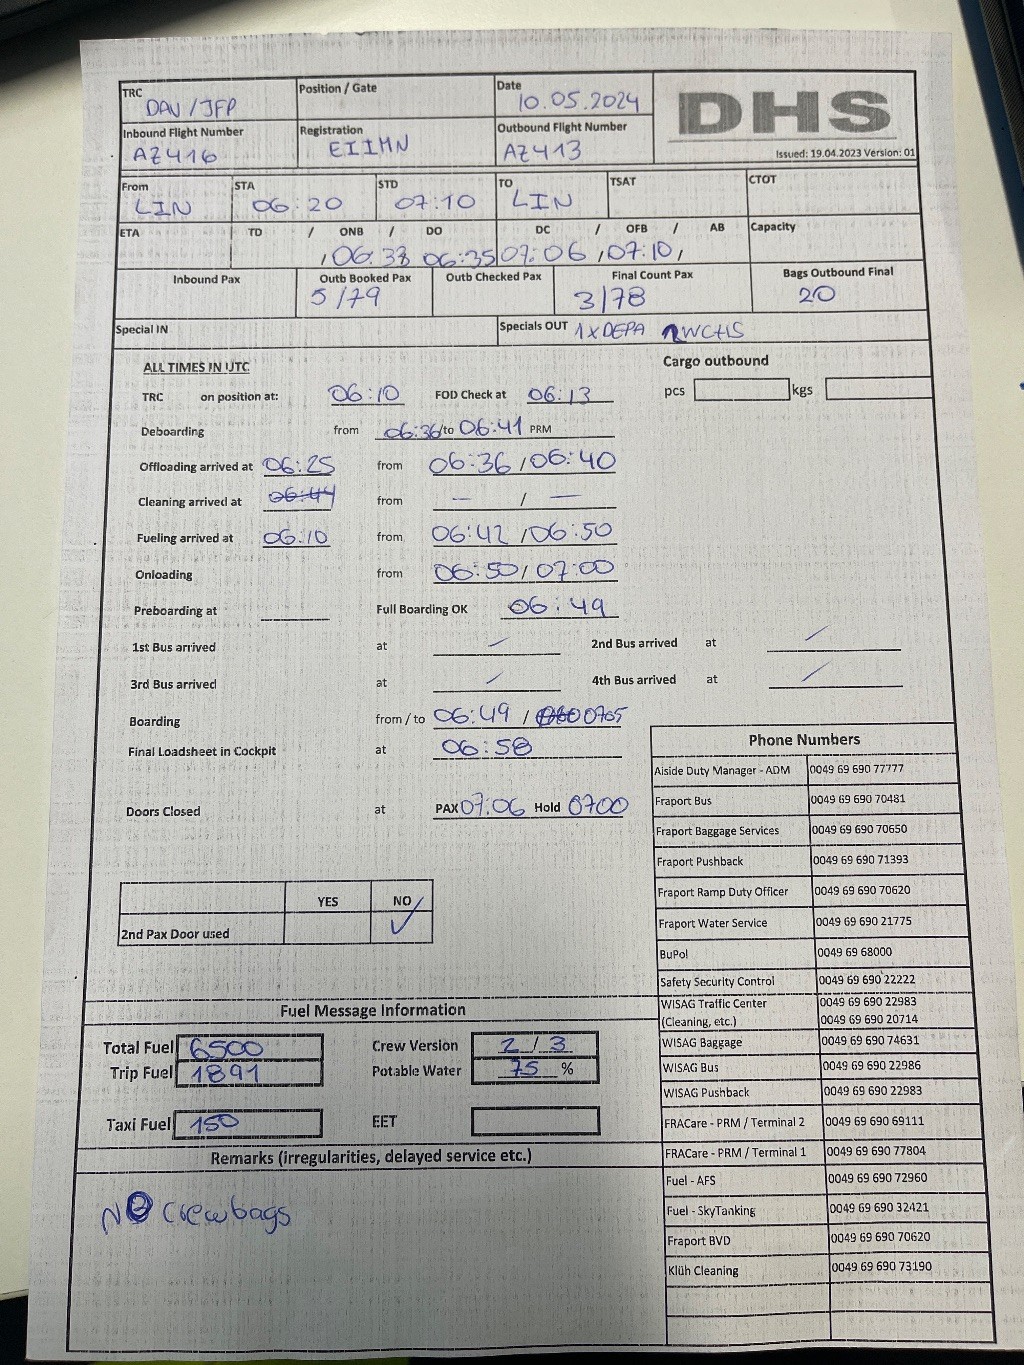 TRC Position / Gate Date DHS
DAV / JFP 10.05.2024
Inbound Flight Number Registration Outbound Flight Number
AZ416 EIIHN AZ413
Issued: 19.04.2023 Version: 01
From STA STD TO TSAT CTOT
LIN 06:20 07:10 LIN
ETA TD / ONB / DO DC / OFB / AB Capacity
, 06:33 06:35 07:06 , 07:10 ,
Inbound Pax Outb Booked Pax Outb Checked Pax Final Count Pax Bags Outbound Final
5 / 79 3 / 78 20
Special IN Specials OUT 1 x DEPA WCHS
ALL TIMES IN UTC Cargo outbound
TRC on position at: 06:10 FOD Check at 06:13 pcs kgs
Deboarding from 06:36 /to 06:41 PRM
Offloading arrived at 06:25 from 06:36 / 06:40
Cleaning arrived at 06:44 from — / —
Fueling arrived at 06:10 from 06:42 / 06:50
Onloading from 06:50 / 07:00
Preboarding at Full Boarding OK 06:49
1st Bus arrived at / 2nd Bus arrived at /
3rd Bus arrived at / 4th Bus arrived at /
Boarding from / to 06:49 / 0705
Final Loadsheet in Cockpit at 06:58
Doors Closed at PAX 07:06 Hold 0700
YES NO
2nd Pax Door used ✓
Phone Numbers
Aiside Duty Manager - ADM 0049 69 690 77777
Fraport Bus 0049 69 690 70481
Fraport Baggage Services 0049 69 690 70650
Fraport Pushback 0049 69 690 71393
Fraport Ramp Duty Officer 0049 69 690 70620
Fraport Water Service 0049 69 690 21775
BuPol 0049 69 68000
Safety Security Control 0049 69 690 22222
WISAG Traffic Center 0049 69 690 22983
(Cleaning, etc.) 0049 69 690 20714
WISAG Baggage 0049 69 690 74631
WISAG Bus 0049 69 690 22986
WISAG Pushback 0049 69 690 22983
FRACare - PRM / Terminal 2 0049 69 690 69111
FRACare - PRM / Terminal 1 0049 69 690 77804
Fuel - AFS 0049 69 690 72960
Fuel - SkyTanking 0049 69 690 32421
Fraport BVD 0049 69 690 70620
Klüh Cleaning 0049 69 690 73190
Fuel Message Information
Total Fuel 6500 Crew Version 2 / 3
Trip Fuel 1891 Potable Water 75 %
Taxi Fuel 150 EET
Remarks (irregularities, delayed service etc.)
NO crewbags